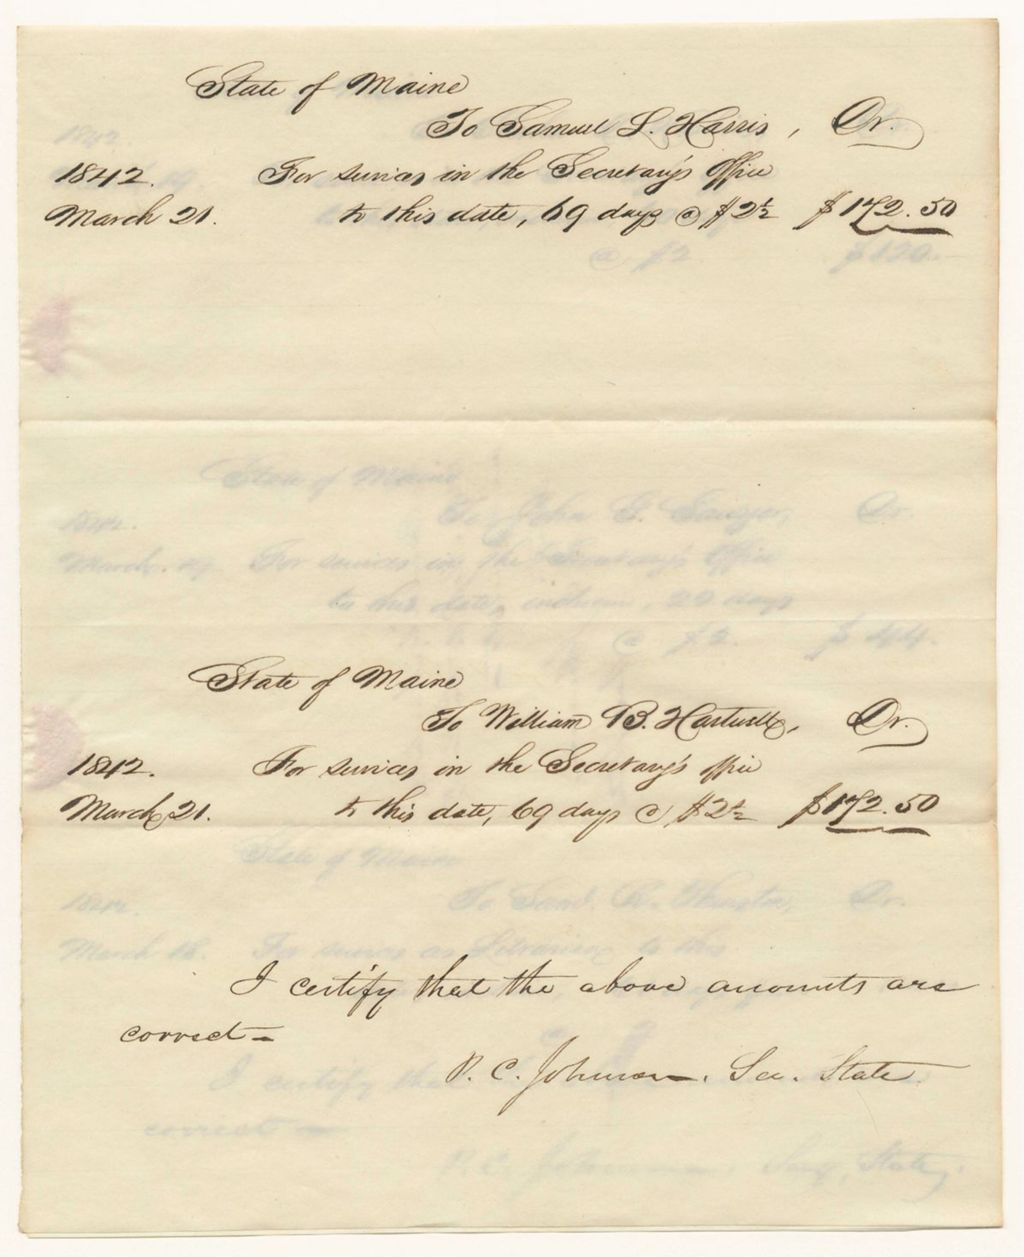 State of Maine
To Samuel L. Harris, Dr.
1842. For services in the Secretary's Office
March 21. to this date, 69 days @ $2½ $172.50
State of Maine
To William B. Hartwell, Dr.
1842. For services in the Secretary's office
March 21. to this date, 69 days @ $2½ $172.50
I certify that the above accounts are
correct—
P. C. Johnson. Sec. State.